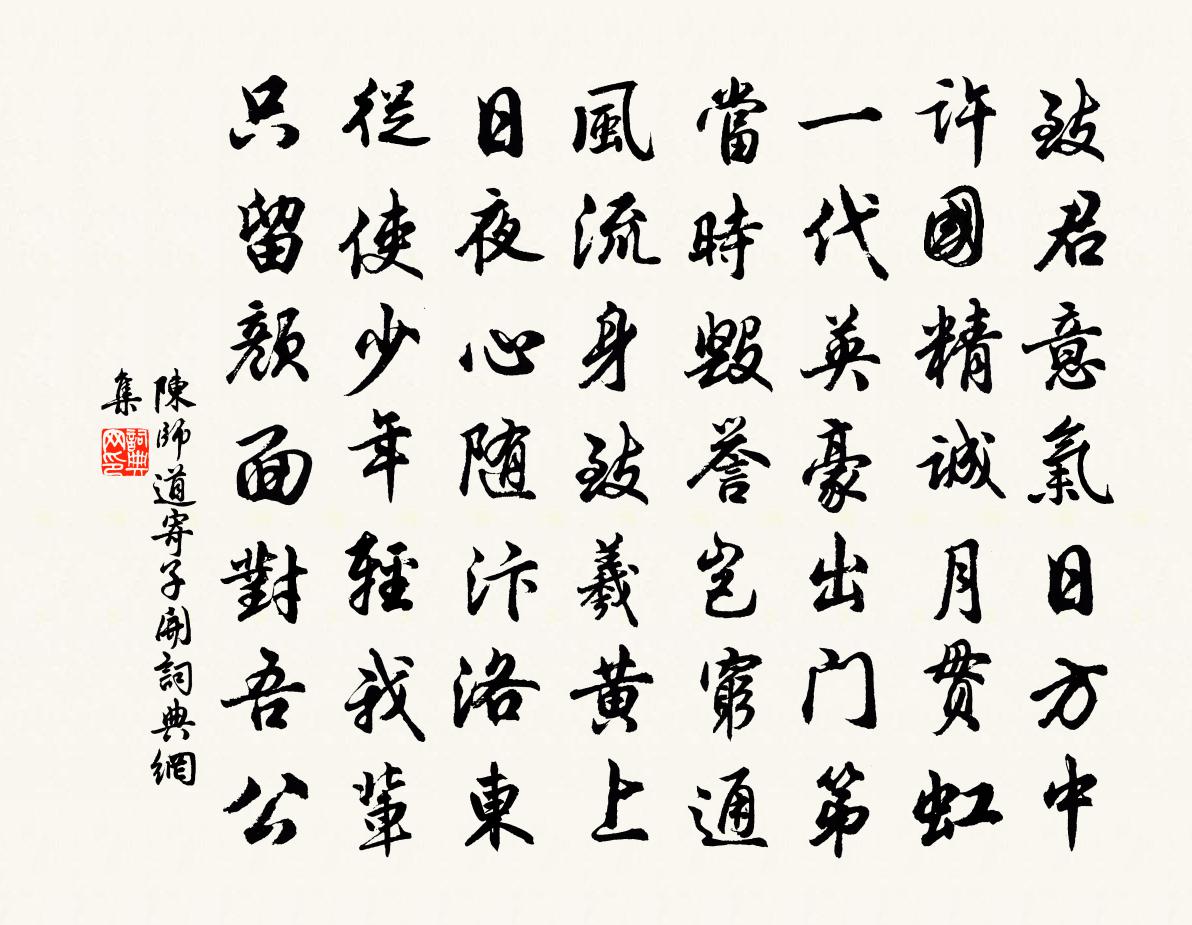 致君意氣日方中
許國精誠月貫虹
一代英豪出門第
當時毀譽豈窮通
風流身致羲黃上
日夜心隨汴洛東
從使少年輕我輩
只留顏面對吾公
陳師道寄子開詞典網
集
詞典
网印